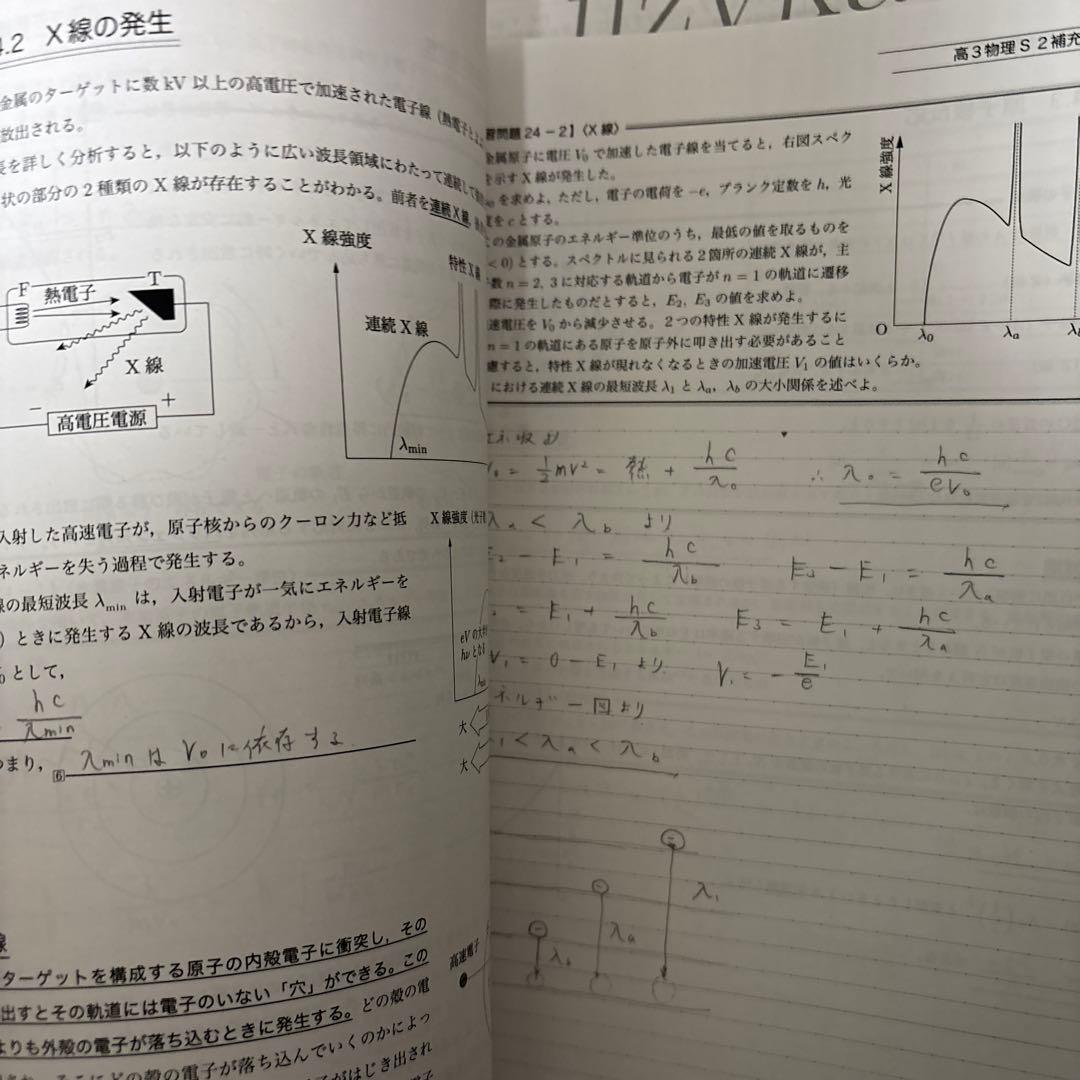 4.2 X線の発生
金属のターゲットに数 kV 以上の高電圧で加速された電子線（熱電子
放出される。
長を詳しく分析すると，以下のように広い波長領域にわたって連続して
状の部分の2種類のX線が存在することがわかる。前者を連続X線
X線強度
特性X線
連続X線
λmin
F
熱電子
T
X線
−
+
高電圧電源
入射した高速電子が，原子核からのクーロン力など抵
ネルギーを失う過程で発生する。
線の最短波長 λmin は，入射電子が一気にエネルギーを
）ときに発生するX線の波長であるから，入射電子線
として，
hc/λmin
つまり，6 λminは V₀に依存する
X線強度
大
大
ターゲットを構成する原子の内殻電子に衝突し，その
出すとその軌道には電子のいない「穴」ができる。この
よりも外殻の電子が落ち込むときに発生する。どの殻の電
そこにどの殻の電子が落ち込んでいくのかによっ
はじき出され
高速電子
高3物理S 2補充
習問題 24－2】〈X線〉
金属原子に電圧 V₀ で加速した電子線を当てると，右図スペク
を示すX線が発生した。
を求めよ，ただし，電子の電荷を −e，プランク定数を h，光
度を c とする。
の金属原子のエネルギー準位のうち，最低の値を取るものを
< 0) とする。スペクトルに見られる2箇所の連続X線が，主
数 n = 2, 3 に対応する軌道から電子が n = 1 の軌道に遷移
際に発生したものだとすると，E₂, E₃ の値を求めよ。
速電圧を V₀ から減少させる。2つの特性X線が発生するに
n = 1 の軌道にある原子を原子外に叩き出す必要があること
慮すると，特性X線が現れなくなるときの加速電圧 V₁ の値はいくらか。
における連続X線の最短波長 λ₁ と λa，λb の大小関係を述べよ。
X線強度
O
λ₀
λa
エネ収より
V₀ = 1/2 mv² = 熱 + hc/λ₀ ∴ λ₀ = hc/eV₀
λa < λb より
E₂ − E₁ = hc/λb E₃ − E₁ = hc/λa
₂ = E₁ + hc/λb E₃ = E₁ + hc/λa
V₁ = 0 − E₁ より V₁ = − E₁/e
ネルギー図より
₁ < λa < λb
λb
λa
λ₁